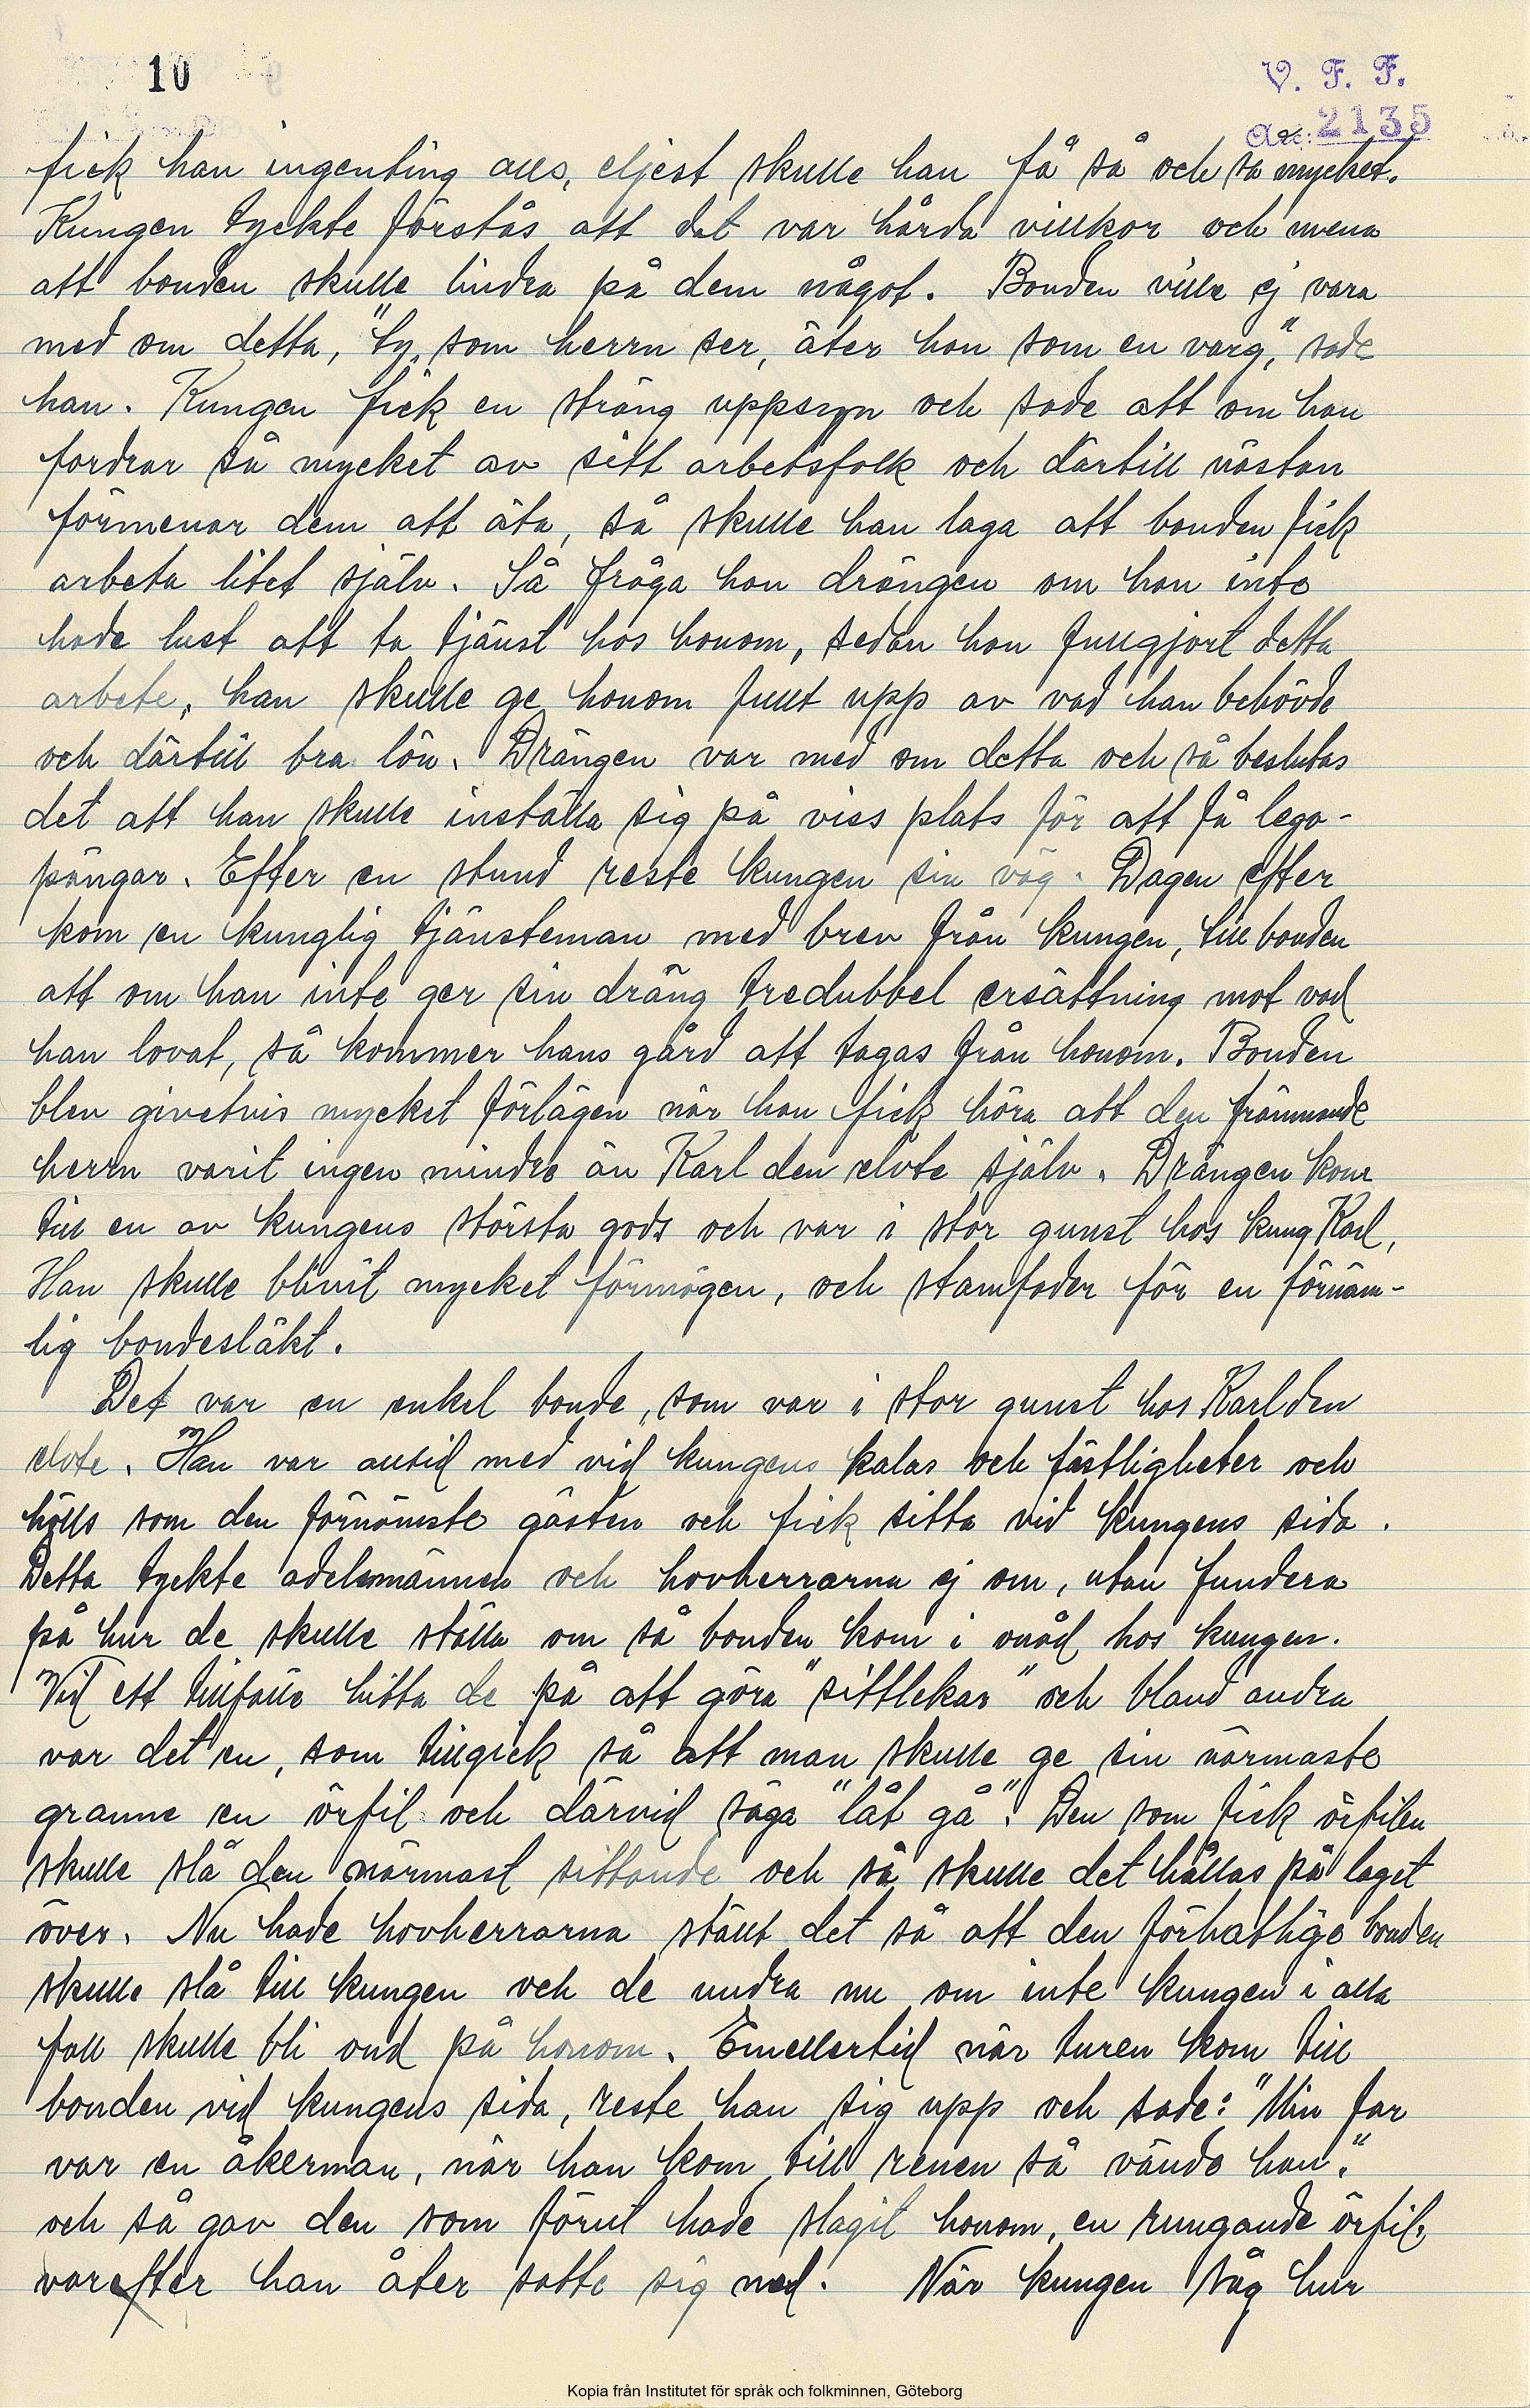 10
V. F. F.
Acc: 2135
fick han ingenting alls, eljest skulle han få så och så mycket.
Kungen tyckte förstås att det var hårda villkor och mena
att bonden skulle lindra på dem något. Bonden ville ej vara
med om detta, "ty, som herrn ser, äter han som en varg", sade
han. Kungen fick en sträng uppsyn och sade att om han
fordrar så mycket av sitt arbetsfolk och därtill nästan
förmenar dem att äta, så skulle han laga att bonden fick
arbeta litet själv. Så fråga han drängen om han inte
hade lust att ta tjänst hos honom, sedan han fullgjort detta
arbete, han skulle ge honom fullt upp av vad han behövde
och därtill bra lön. Drängen var med om detta och så beslutas
det att han skulle inställa sig på viss plats för att få lega-
pängar. Efter en stund reste kungen sin väg. Dagen efter
kom en kunglig tjänsteman med brev från kungen, till bonden
att om han inte ger sin dräng tredubbel ersättning mot vad
han lovat, så kommer hans gård att tagas från honom. Bonden
blev givetvis mycket förlägen när han fick höra att den främmande
herrn varit ingen mindre än Karl den elvte själv. Drängen kom
till en av kungens största gods och var i stor gunst hos kung Karl,
Han skulle blivit mycket förmögen, och stamfader för en förnäm-
lig bondesläkt.
Det var en enkel bonde, som var i stor gunst hos Karl den
elvte. Han var alltid med vid kungens kalas och fästligheter och
hölls som den förnämste gästen och fick sitta vid kungens sida.
Detta tyckte adelsmännen och hovherrarna ej om, utan fundera
på hur de skulle ställa om så bonden kom i onåd hos kungen.
Vid ett tillfälle hitta de på att göra "sittlekar" och bland andra
var det en, som tillgick så att man skulle ge sin närmaste
granne en örfil och därvid säga "låt gå". Den som fick örfilen
skulle slå den närmast sittande och så skulle det hållas på laget
över. Nu hade hovherrarna ställt det så att den förhatlige bonden
skulle slå till kungen och de undra nu om inte kungen i alla
fall skulle bli ond på honom. Emellertid när turen kom till
bonden vid kungens sida, reste han sig upp och sade: "Min far
var en åkerman, när han kom till renen så vände han."
och så gav den som förut hade slagit honom, en rungande örfil,
varefter han åter satte sig ned. När kungen såg hur
Kopia från Institutet för språk och folkminnen, Göteborg